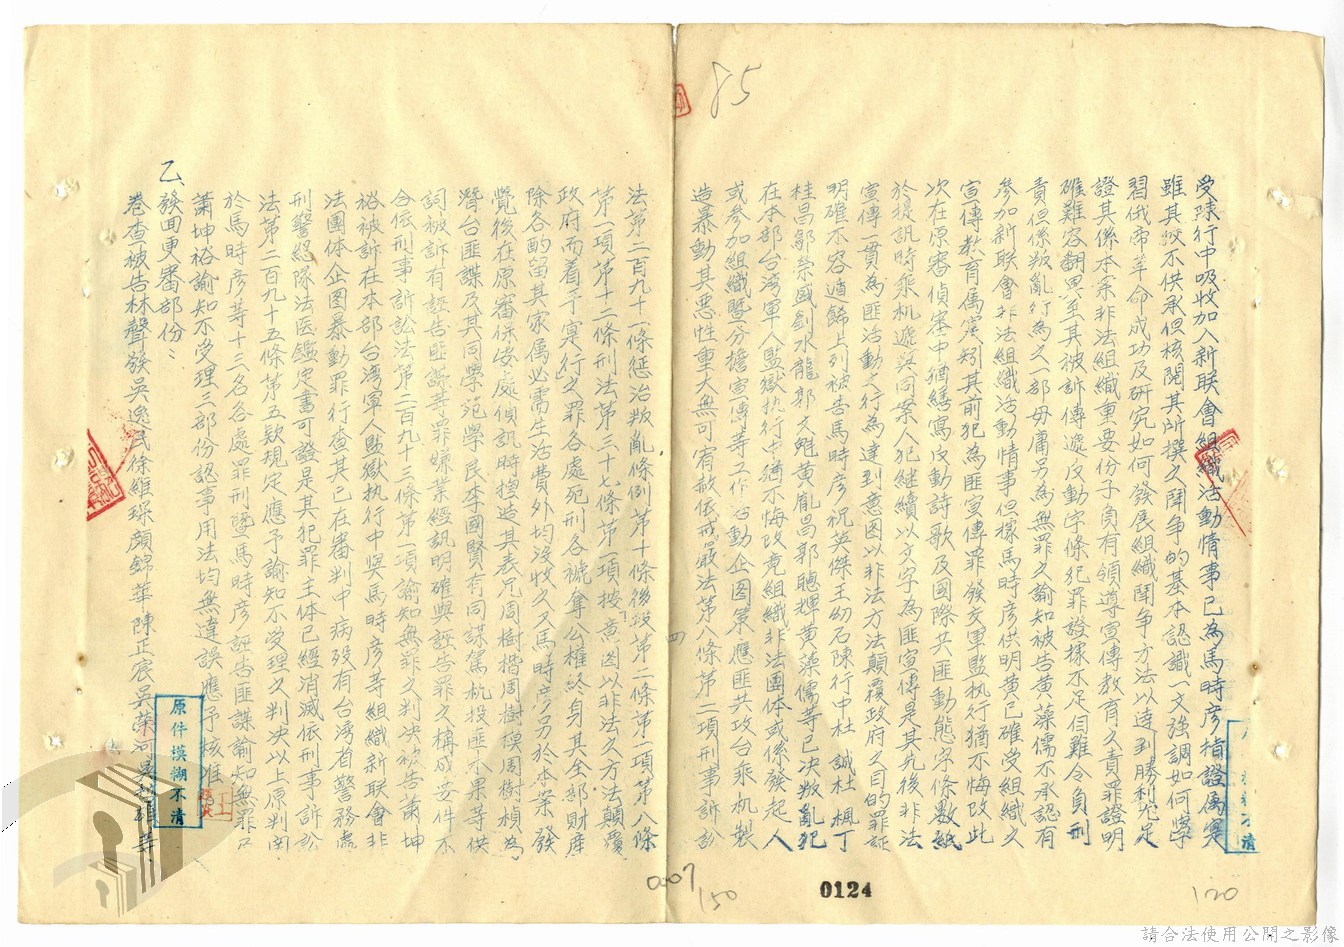 85
受陳行中吸收加入新联會組織活動情事已為馬時彦指證屬实
雖其狡不供承但核閱其所撰之鬪争的基本認識一文強調如何學
習俄帝革命成功及研究如何發展組織鬪争方法以達到勝利尤足
證其係本案非法組織重要份子負有領導宣傳教育之責罪證明
確難容翻異至其被訴傳遞反動字條犯罪證據不足自難令負刑
責但係叛亂行為之一部毋庸另為無罪之諭知被告黄藻儒不承認有
參加新联會非法組織活動情事但據馬時彦供明黄已確受組織之
宣傳教育屬实矧其前犯為匪宣傳罪發交軍監执行猶不悔改此
次在原審偵案中猶繕寫反動詩歌及國際共匪動態字条數紙
於提訊時乘机遞與同案人犯繼續以文字為匪宣傳是其先後非法
宣傳一貫為匪活動之行為達到意图以非法方法顛覆政府之目的罪証
明確不容遁飾上列被告馬時彦祝英傑王幼石陳行中杜誠杜楓丁
桂昌鄒榮盛劉水龍郭久魁黄胤昌郭聰輝黄藻儒等已决叛亂犯
在本部台湾軍人監獄执行中猶不悔改竟組織非法團体或係發起人
或參加組織暨分擔宣傳等工作心動企图策應匪共攻台乘机製
造暴動其惡性重大無可宥赦依戒嚴法第八條第二項刑事訴訟
四
法第二百九十一條懲治叛亂條例第十條後段第二條第一項第八條
第一項第十二條刑法第三十七條第一項按意图以非法之方法顛覆
政府而着手実行之罪各處死刑各褫奪公權終身其全部財產
除各酌留其家属必需生活費外均沒收之又馬時彦另於本案發
覺後在原審保安處偵訊時揑造其表兄周樹楷周樹模周樹楨為
潛台匪諜及其同學范學民李國賢有同謀駕机投匪水果等供
詞被訴有誣告匪諜等罪嫌業經訊明確與誣告罪之構成要件不
合依刑事訴訟法第二百九十三條第一項諭知無罪之判决被告蕭坤
裕被訴在本部台湾軍人監獄执行中與馬時彦等組織新联會非
法團体企图暴動罪行查其已在審判中病殁有台湾省警務處
刑警總隊法医鑑定書可證是其犯罪主体已經消滅依刑事訴訟
法第二百九十五條第五款規定應予諭知不受理之判决以上原判関
於馬時彦等十三名各處罪刑暨馬時彦誣告匪諜諭知無罪及
蕭坤裕諭知不受理三部份認事用法均無違誤應予核准
乙、發回更審部份：
卷查被告林聲發吳逸民徐維琛顏錦華陳正宸吳榮河
原件模糊不清
0007
150
0124
120
請合法使用公開之影像